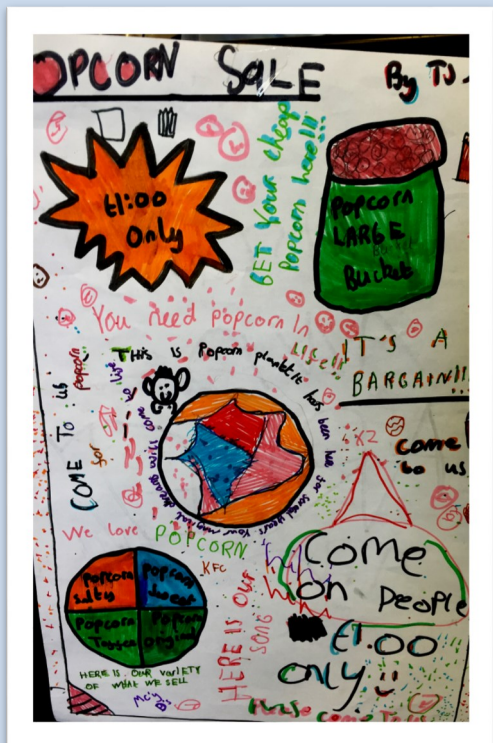 POPCORN SALE
By TJ
£1:00
Only
GET Your cheap
Popcorn here!!!
Popcorn
LARGE
Bucket
You need popcorn In
Life!!
IT'S A
BARGAIN!!
THis is Popcorn planet It has been here for
COME To us
for
popcorn
x2
come
to us
We love POPCORN
KFC
Popcorn
salty
Popcorn
sweet
Popcorn
Popcorn
original
HERE IS OUR VARIETY
OF WHAT WE SELL
HERE IS OUR
SONG
COME
on PEOPLE
£1.00
only
Please come To